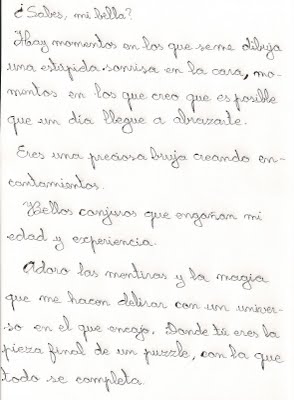 ¿Sabes, mi bella?
Hay momentos en los que se me dibuja
una estúpida sonrisa en la cara, mo-
mentos en los que creo que es posible
que un día llegue a abrazarte.
Eres una preciosa bruja creando en-
cantamientos.
Bellos conjuros que engañan mi
edad y experiencia.
Adoro las mentiras y la magia
que me hacen delirar con un univer-
so en el que encajo. Donde tú eres la
pieza final de un puzzle, con la que
todo se completa.